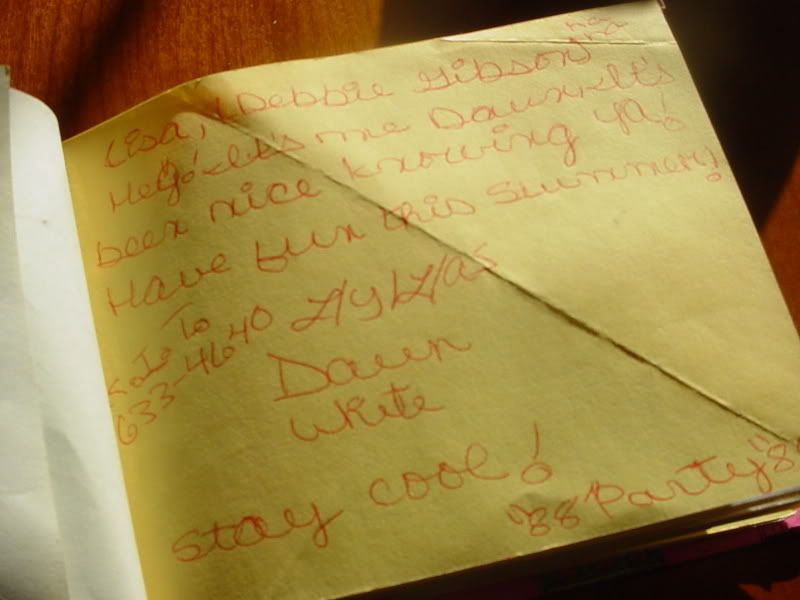 Lisa, (Debbie Gibson) ha ha
Hey! It's me Dawn-It's
been nice knowing ya!
Have fun this summer!
633-4640 L/Y/L/as
Dawn
White
stay cool!
"88 Party "88